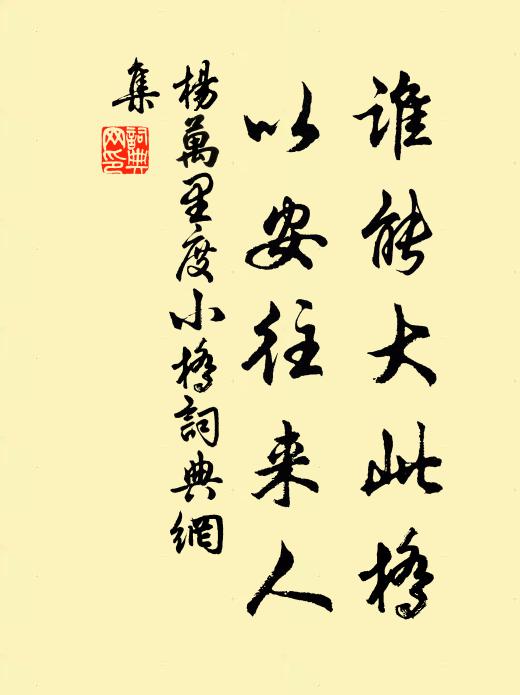 谁能大此橋
以安往来人
楊萬里度小橋詞典網
集
詞典
网印